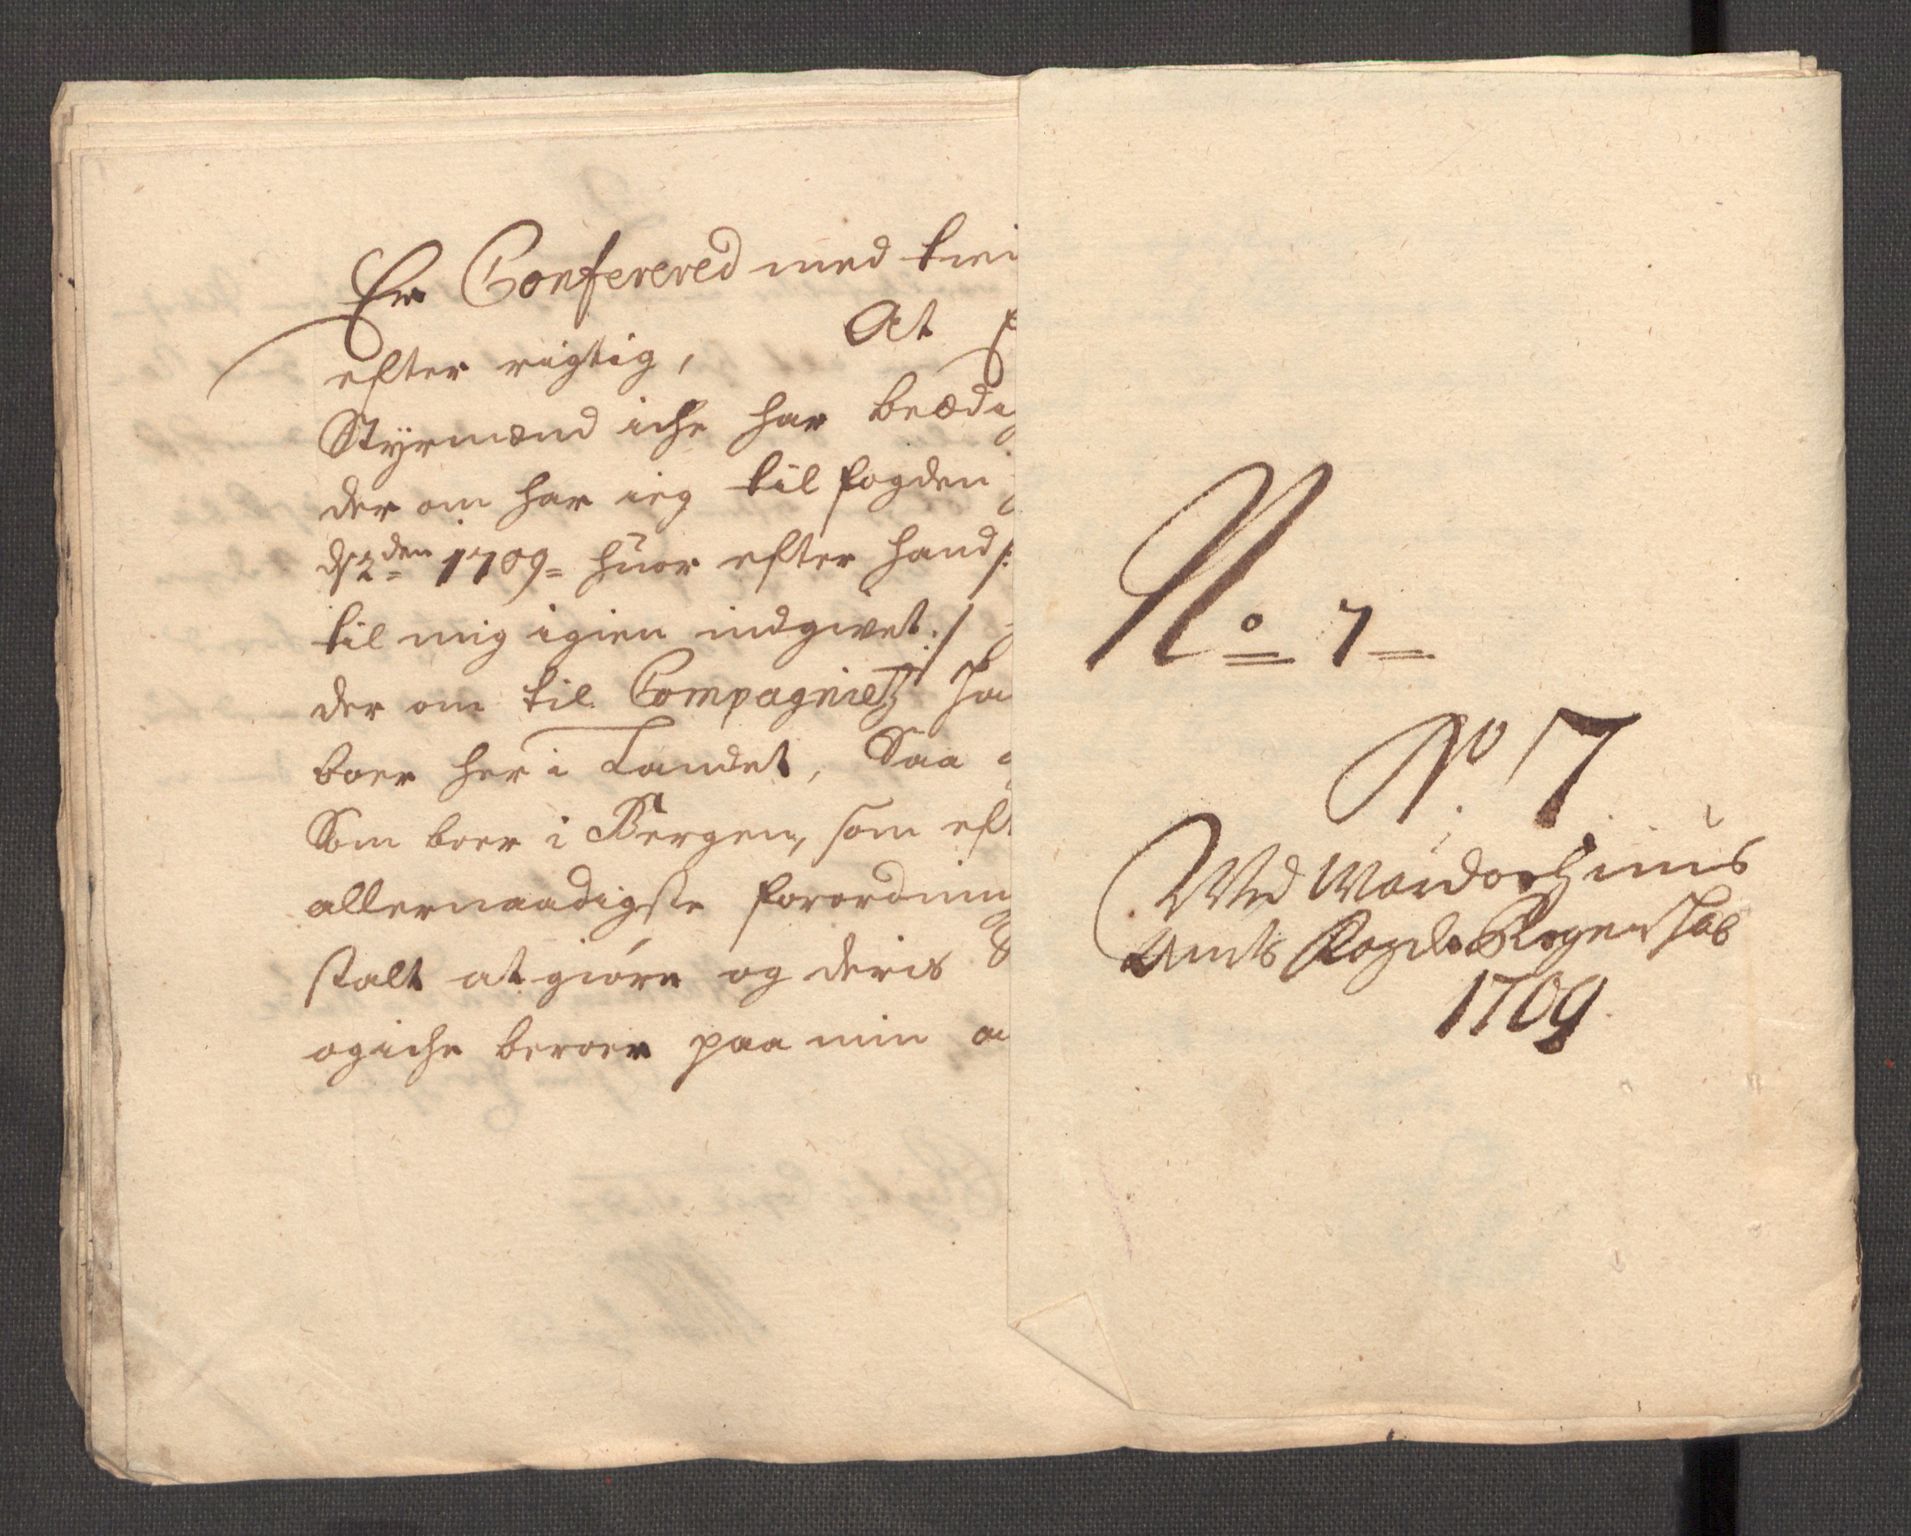 Er Conferered med
efter rigtig, At
Styrmænd iche har beædi
der om har ieg til fogden
d 2den 1709 huor efter hand
til mig igien indgivet
der om til Compagniets
boer her i Landet, Saa
Som boer i Bergen, som eft
allernaadigste forordning
stalt at giøre og deris
og iche beroer paa min
No 7
No. 7
Wed Wardøehuus
Amts Fogde Regenschab
1709